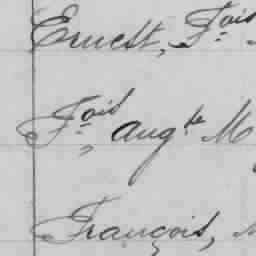 Ernest, F.ois
F.ois, Aug.te M
François, M